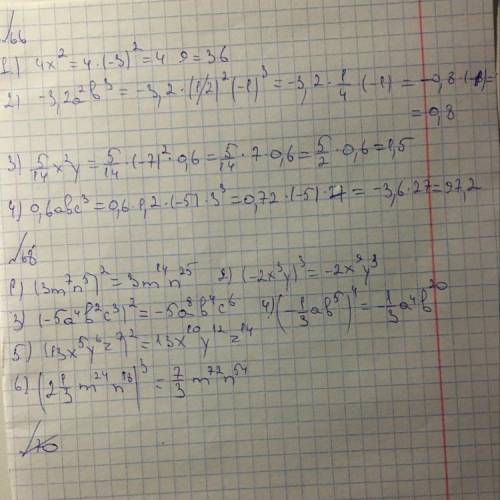 №66
1) 4x² = 4 · (-3)² = 4 · 9 = 36
2) -3,2a²b³ = -3,2 · (1/2)² (-1)³ = -3,2 · 1/4 · (-1) = -0,8 · (-1) =
= 0,8
3) 5/14 x²y = 5/14 · (-7)² · 0,6 = 5/14 · 7 · 0,6 = 5/2 · 0,6 = 1,5
4) 0,6abc³ = 0,6 · 1,2 · (-5) · 3³ = 0,72 · (-5) · 27 = -3,6 · 27 = 97,2
№68
1) (3m⁷n⁵)² = 3m¹⁴n²⁵ 2) (-2x³y)³ = -2x⁹y³
3) (-5a⁴b²c³)² = -5a⁸b⁴c⁶ 4) (-1/3 ab⁵)⁴ = -1/3 a⁴b²⁰
5) (13x⁵y⁶z⁷)² = 13x¹⁰y¹²z¹⁴
6) (2 1/3 m²⁴n¹⁸)³ = 7/3 m⁷²n⁵⁴
№70